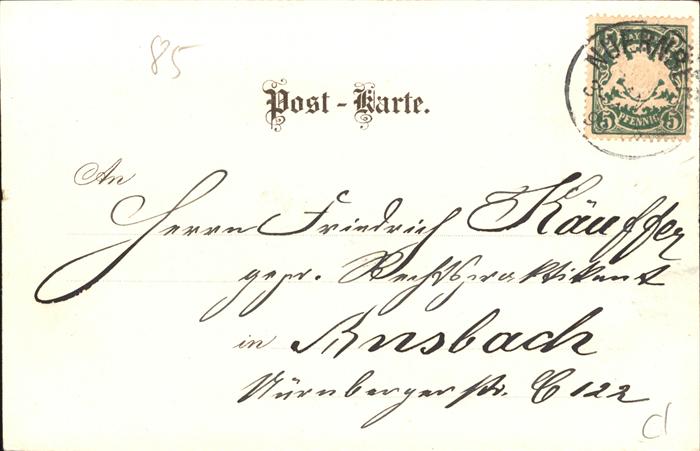 85
5 BAYERN 5
NUERNBE
Post-Karte.
5 PFENNIG 5
An
Herrn Friedrich Käuffer
gepr. Rechtspraktikant
in Ansbach
Nürnbergerstr. C 122
d